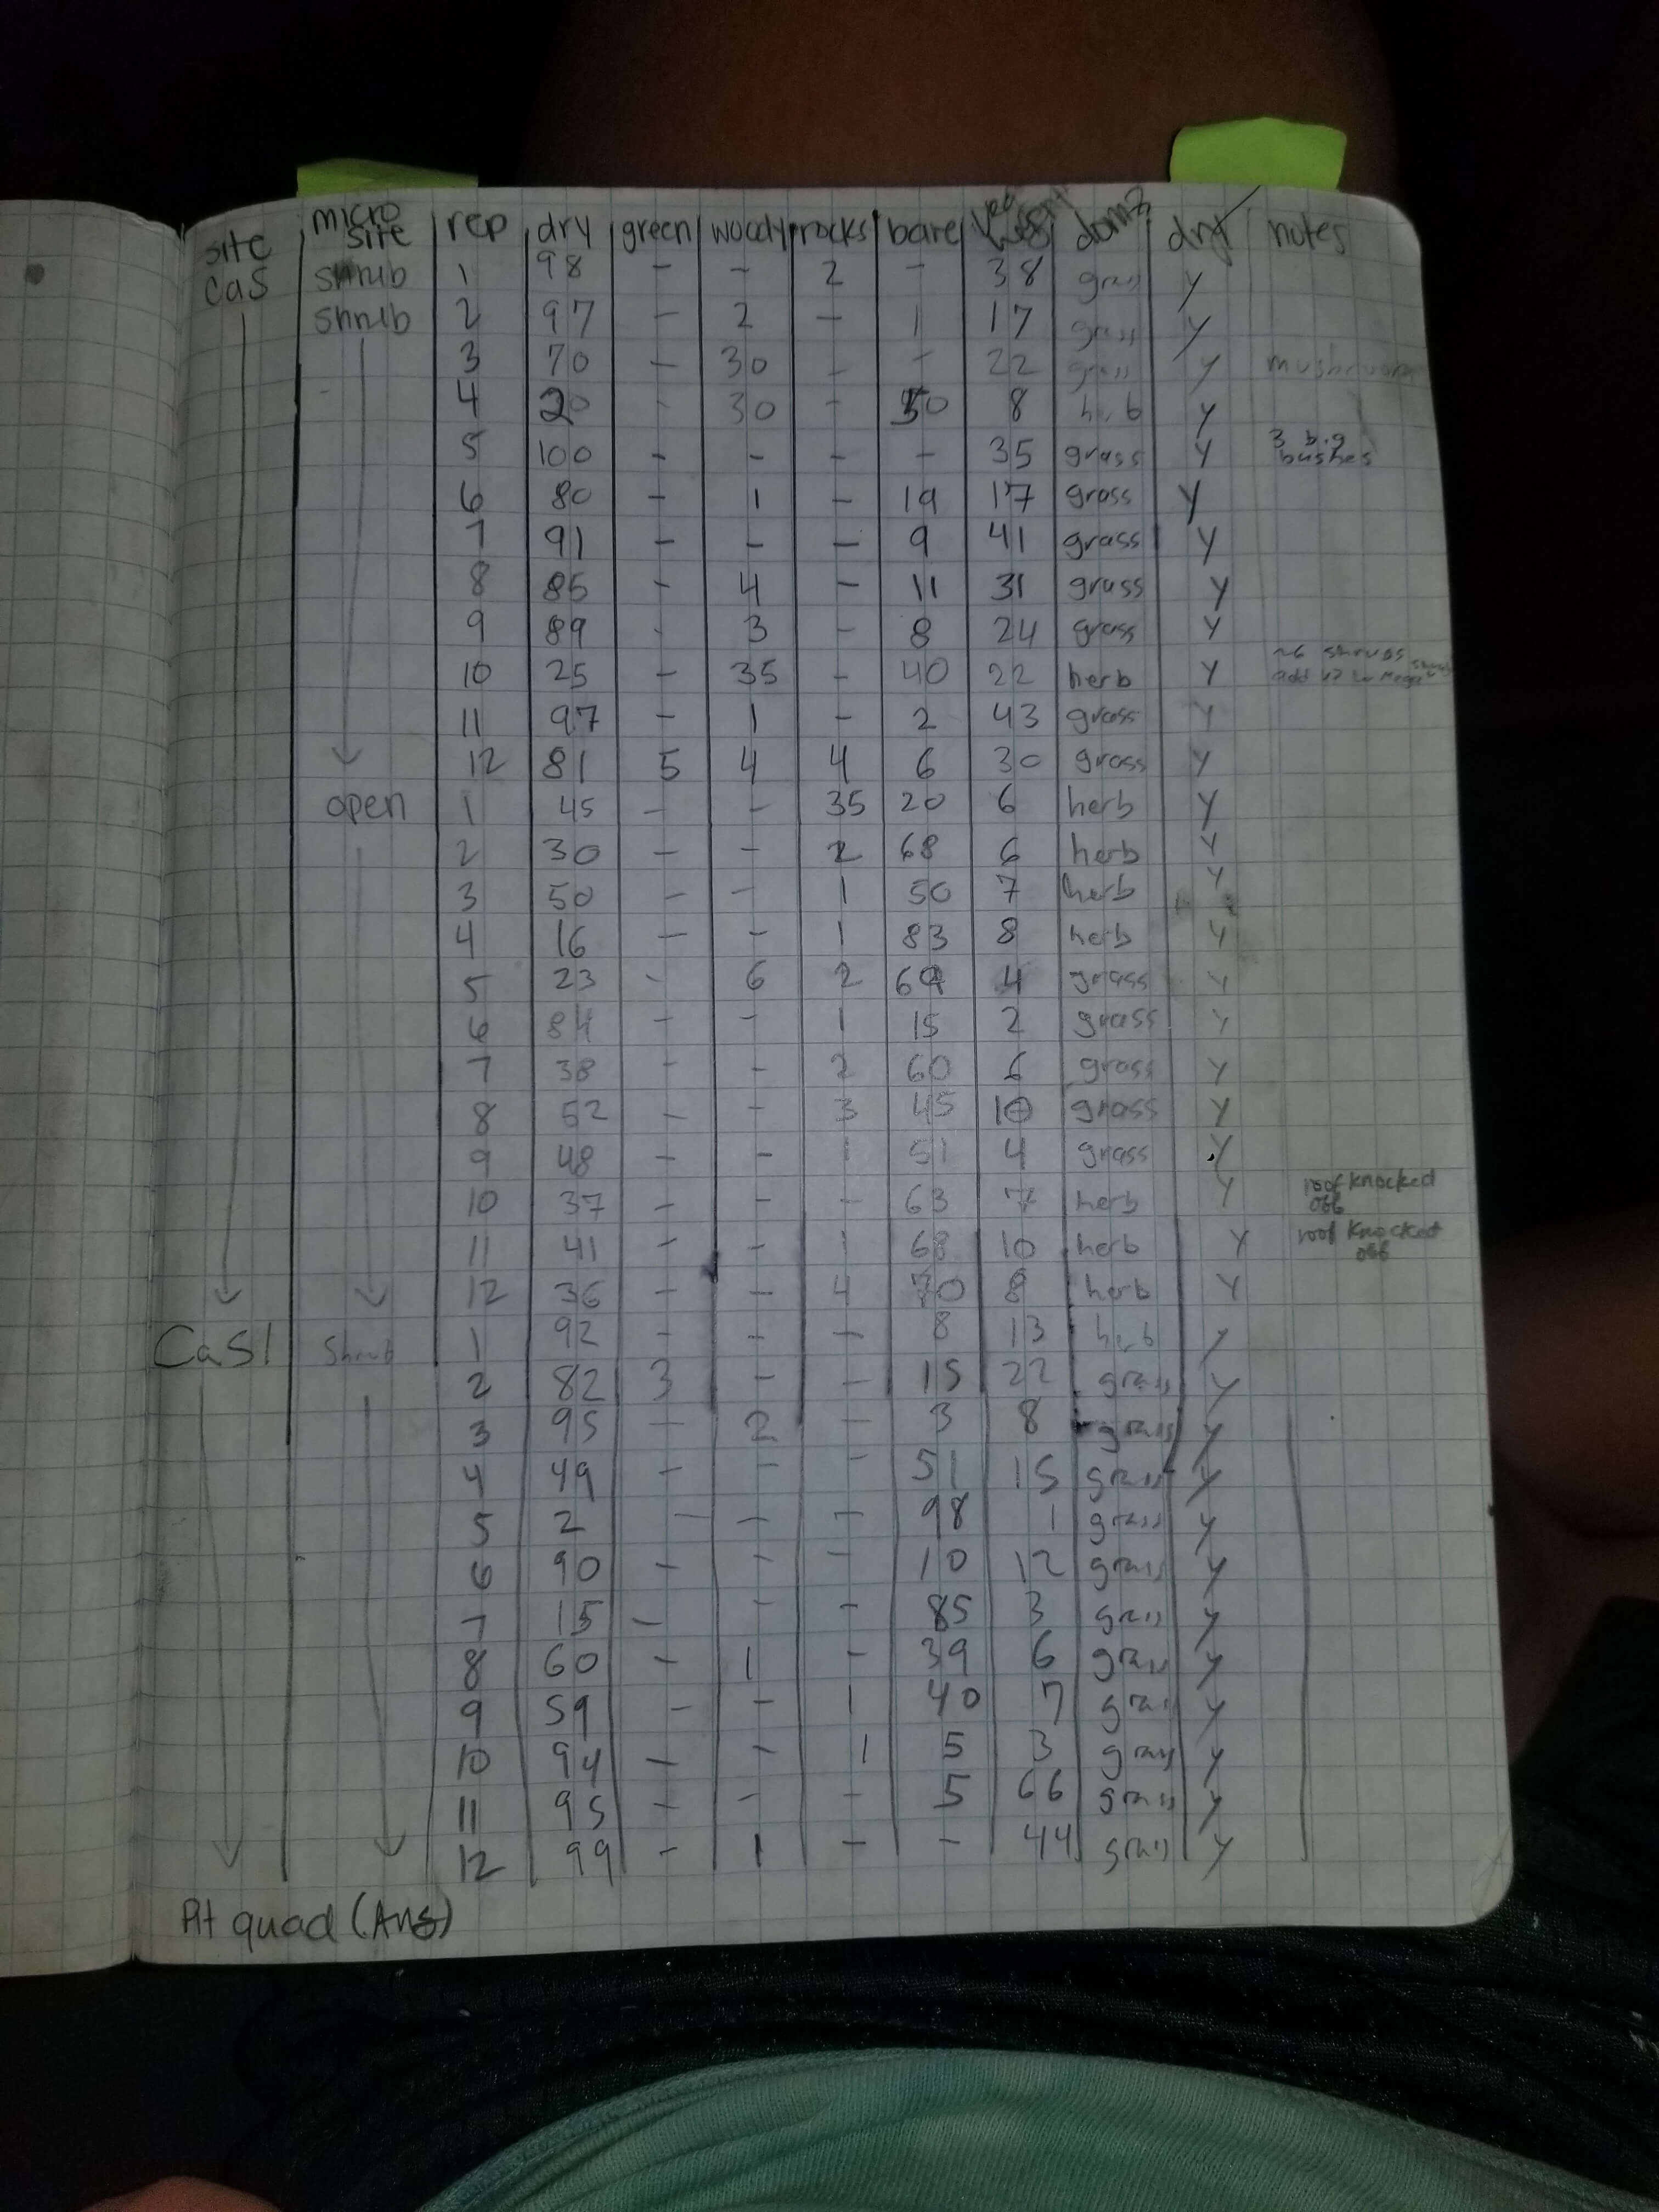 site micro site rep dry green woody rocks bare veg height dom? dry notes
CaS shrub 1 98 - - 2 - 38 grass y
shrub 2 97 - 2 - 1 17 grass y
3 70 - 30 - - 22 grass y mushroom
4 20 - 30 - 50 8 herb y
5 100 - - - - 35 grass y 3 big bushes
6 80 - 1 - 19 17 grass y
7 91 - - - 9 41 grass y
8 85 - 4 - 11 31 grass y
9 89 - 3 - 8 24 grass y
10 25 - 35 - 40 22 herb y ~6 shrubs add up to mega shrub
11 97 - 1 - 2 43 grass y
12 81 5 4 4 6 30 grass y
open 1 45 - - 35 20 6 herb y
2 30 - - 2 68 6 herb y
3 50 - - 1 50 7 herb y
4 16 - - 1 83 8 herb y
5 23 - 6 2 69 4 grass y
6 84 - - 1 15 2 grass y
7 38 - - 2 60 6 grass y
8 52 - - 3 45 10 grass y
9 48 - - 1 51 4 grass y
10 37 - - - 63 7 herb y roof knocked off
11 41 - - 1 68 10 herb y roof knocked off
12 36 - - 4 70 8 herb y
CaS1 shrub 1 92 - - - 8 13 herb y
2 82 3 - - 15 22 grass y
3 95 - 2 - 3 8 grass y
4 49 - - - 51 15 grass y
5 2 - - - 98 1 grass y
6 90 - - - 10 12 grass y
7 15 - - - 85 3 grass y
8 60 - 1 - 39 6 grass y
9 59 - - 1 40 7 grass y
10 94 - - 1 5 3 grass y
11 95 - - - 5 66 grass y
12 99 - 1 - - 44 grass y
Pit quad (Ans)